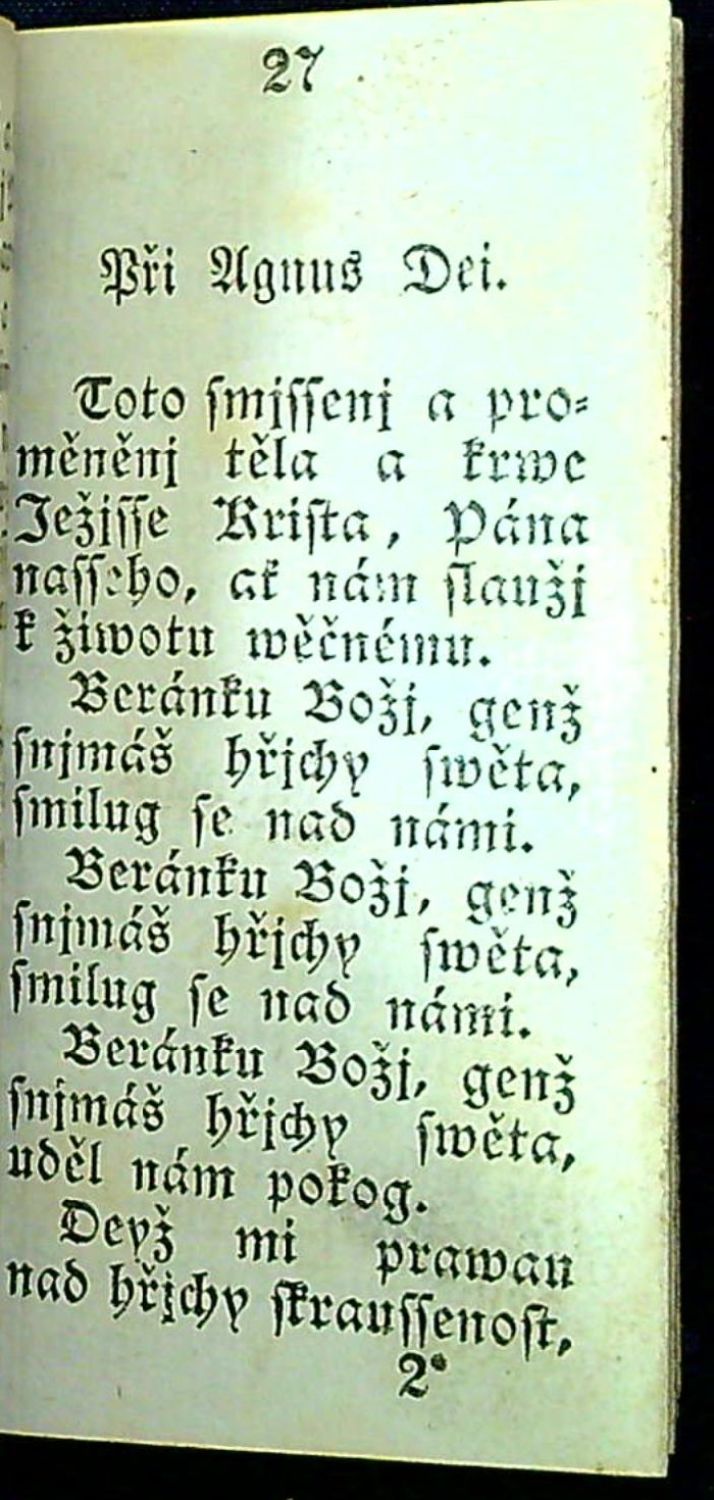 27
Při Agnus Dei.
Toto ſmjſſenj a pro⸗
měněnj těla a krwe
Ježjſſe Kriſta, Pána
naſſeho, ať nám ſlaužj
k žiwotu wěčnému.
Beránku Božj, genž
ſnjmáš hřjchy ſwěta,
ſmilug ſe nad námi.
Beránku Božj, genž
ſnjmáš hřjchy ſwěta,
ſmilug ſe nad námi.
Beránku Božj, genž
ſnjmáš hřjchy ſwěta,
uděl nám pokog.
Deyž mi prawau
nad hřjchy ſkrauſſenoſt,
2*